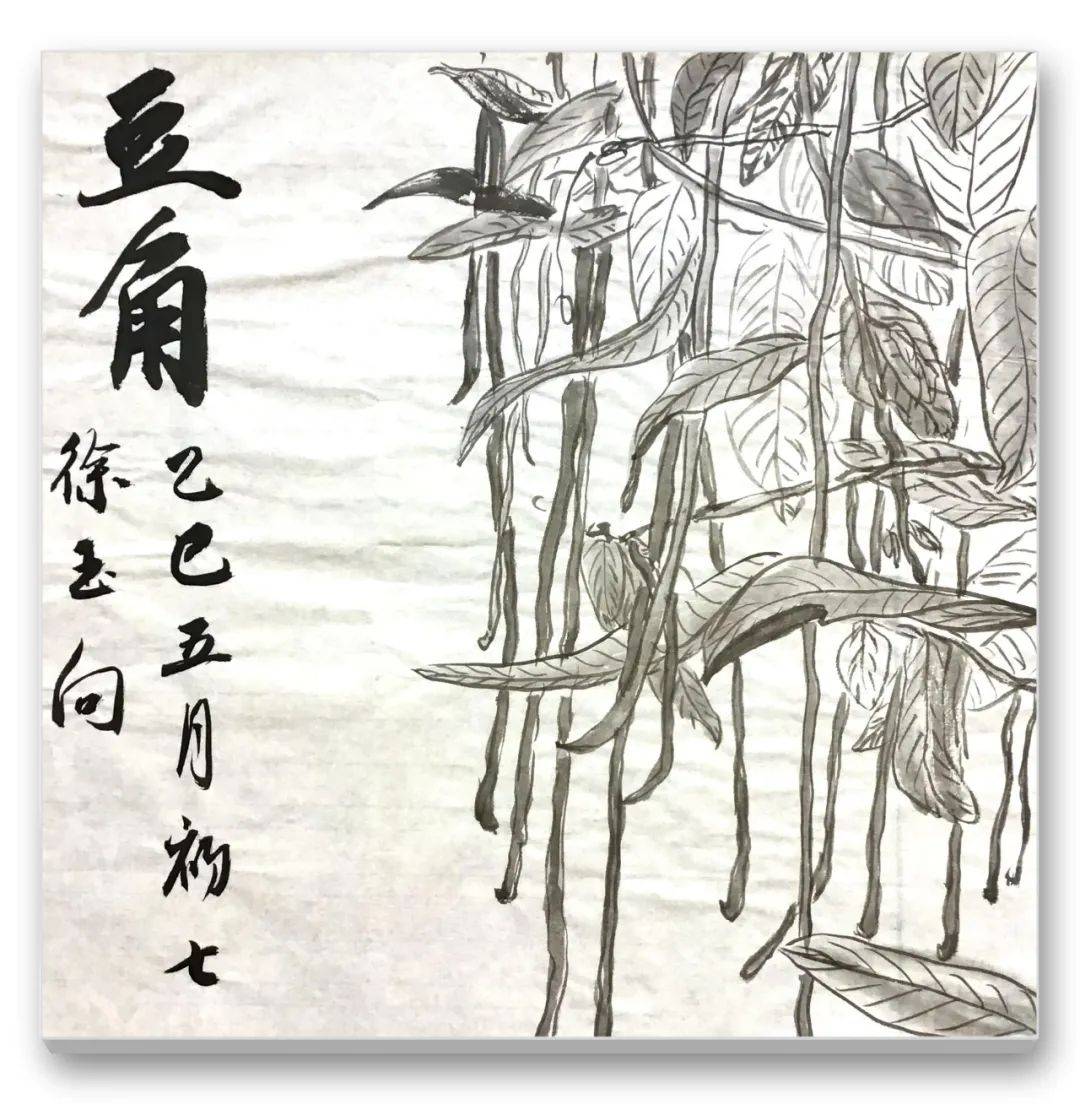 豆角
乙巳五月初七
徐玉向